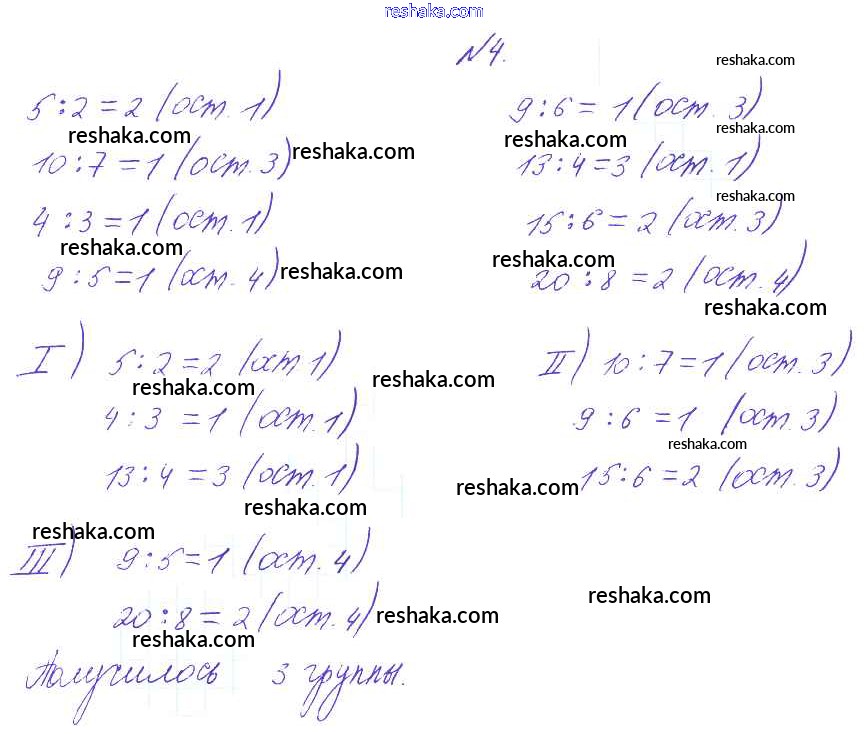 reshaka.com
№4.
reshaka.com
5:2=2 (ост. 1)
9:6=1 (ост. 3)
reshaka.com
reshaka.com
reshaka.com
10:7=1 (ост. 3)
reshaka.com
13:4=3 (ост. 1)
reshaka.com
4:3=1 (ост. 1)
15:6=2 (ост. 3)
reshaka.com
reshaka.com
9:5=1 (ост. 4)
reshaka.com
20:8=2 (ост. 4)
reshaka.com
I) 5:2=2 (ост 1)
II) 10:7=1 (ост. 3)
reshaka.com
reshaka.com
4:3=1 (ост. 1)
9:6=1 (ост. 3)
reshaka.com
13:4=3 (ост. 1)
15:6=2 (ост. 3)
reshaka.com
reshaka.com
reshaka.com
III) 9:5=1 (ост. 4)
reshaka.com
20:8=2 (ост. 4)
reshaka.com
reshaka.com
Получилось 3 группы.